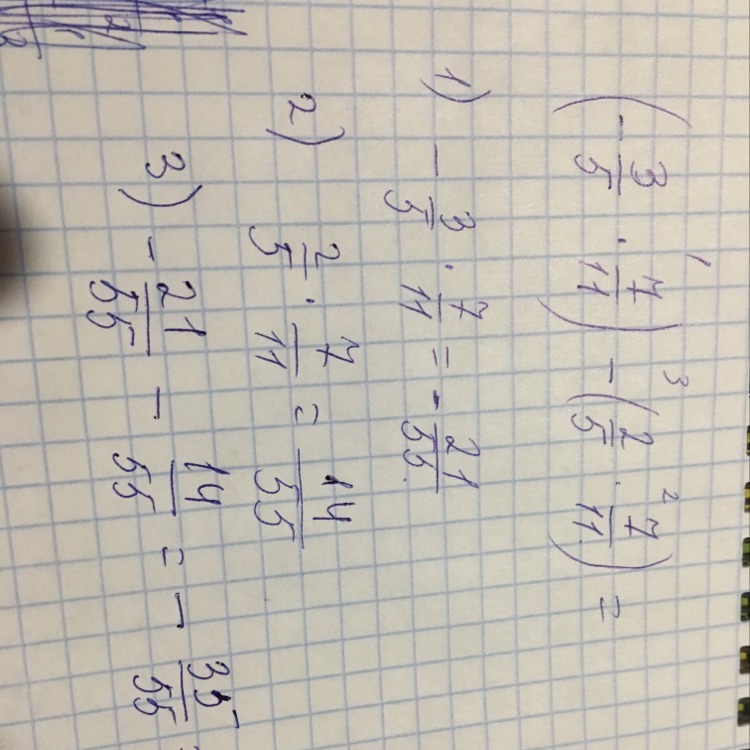 (-3/5 · 7/11) - (2/5 · 7/11) =
1 3 2
1) -3/5 · 7/11 = -21/55
2) 2/5 · 7/11 = 14/55
3) -21/55 - 14/55 = -35/55